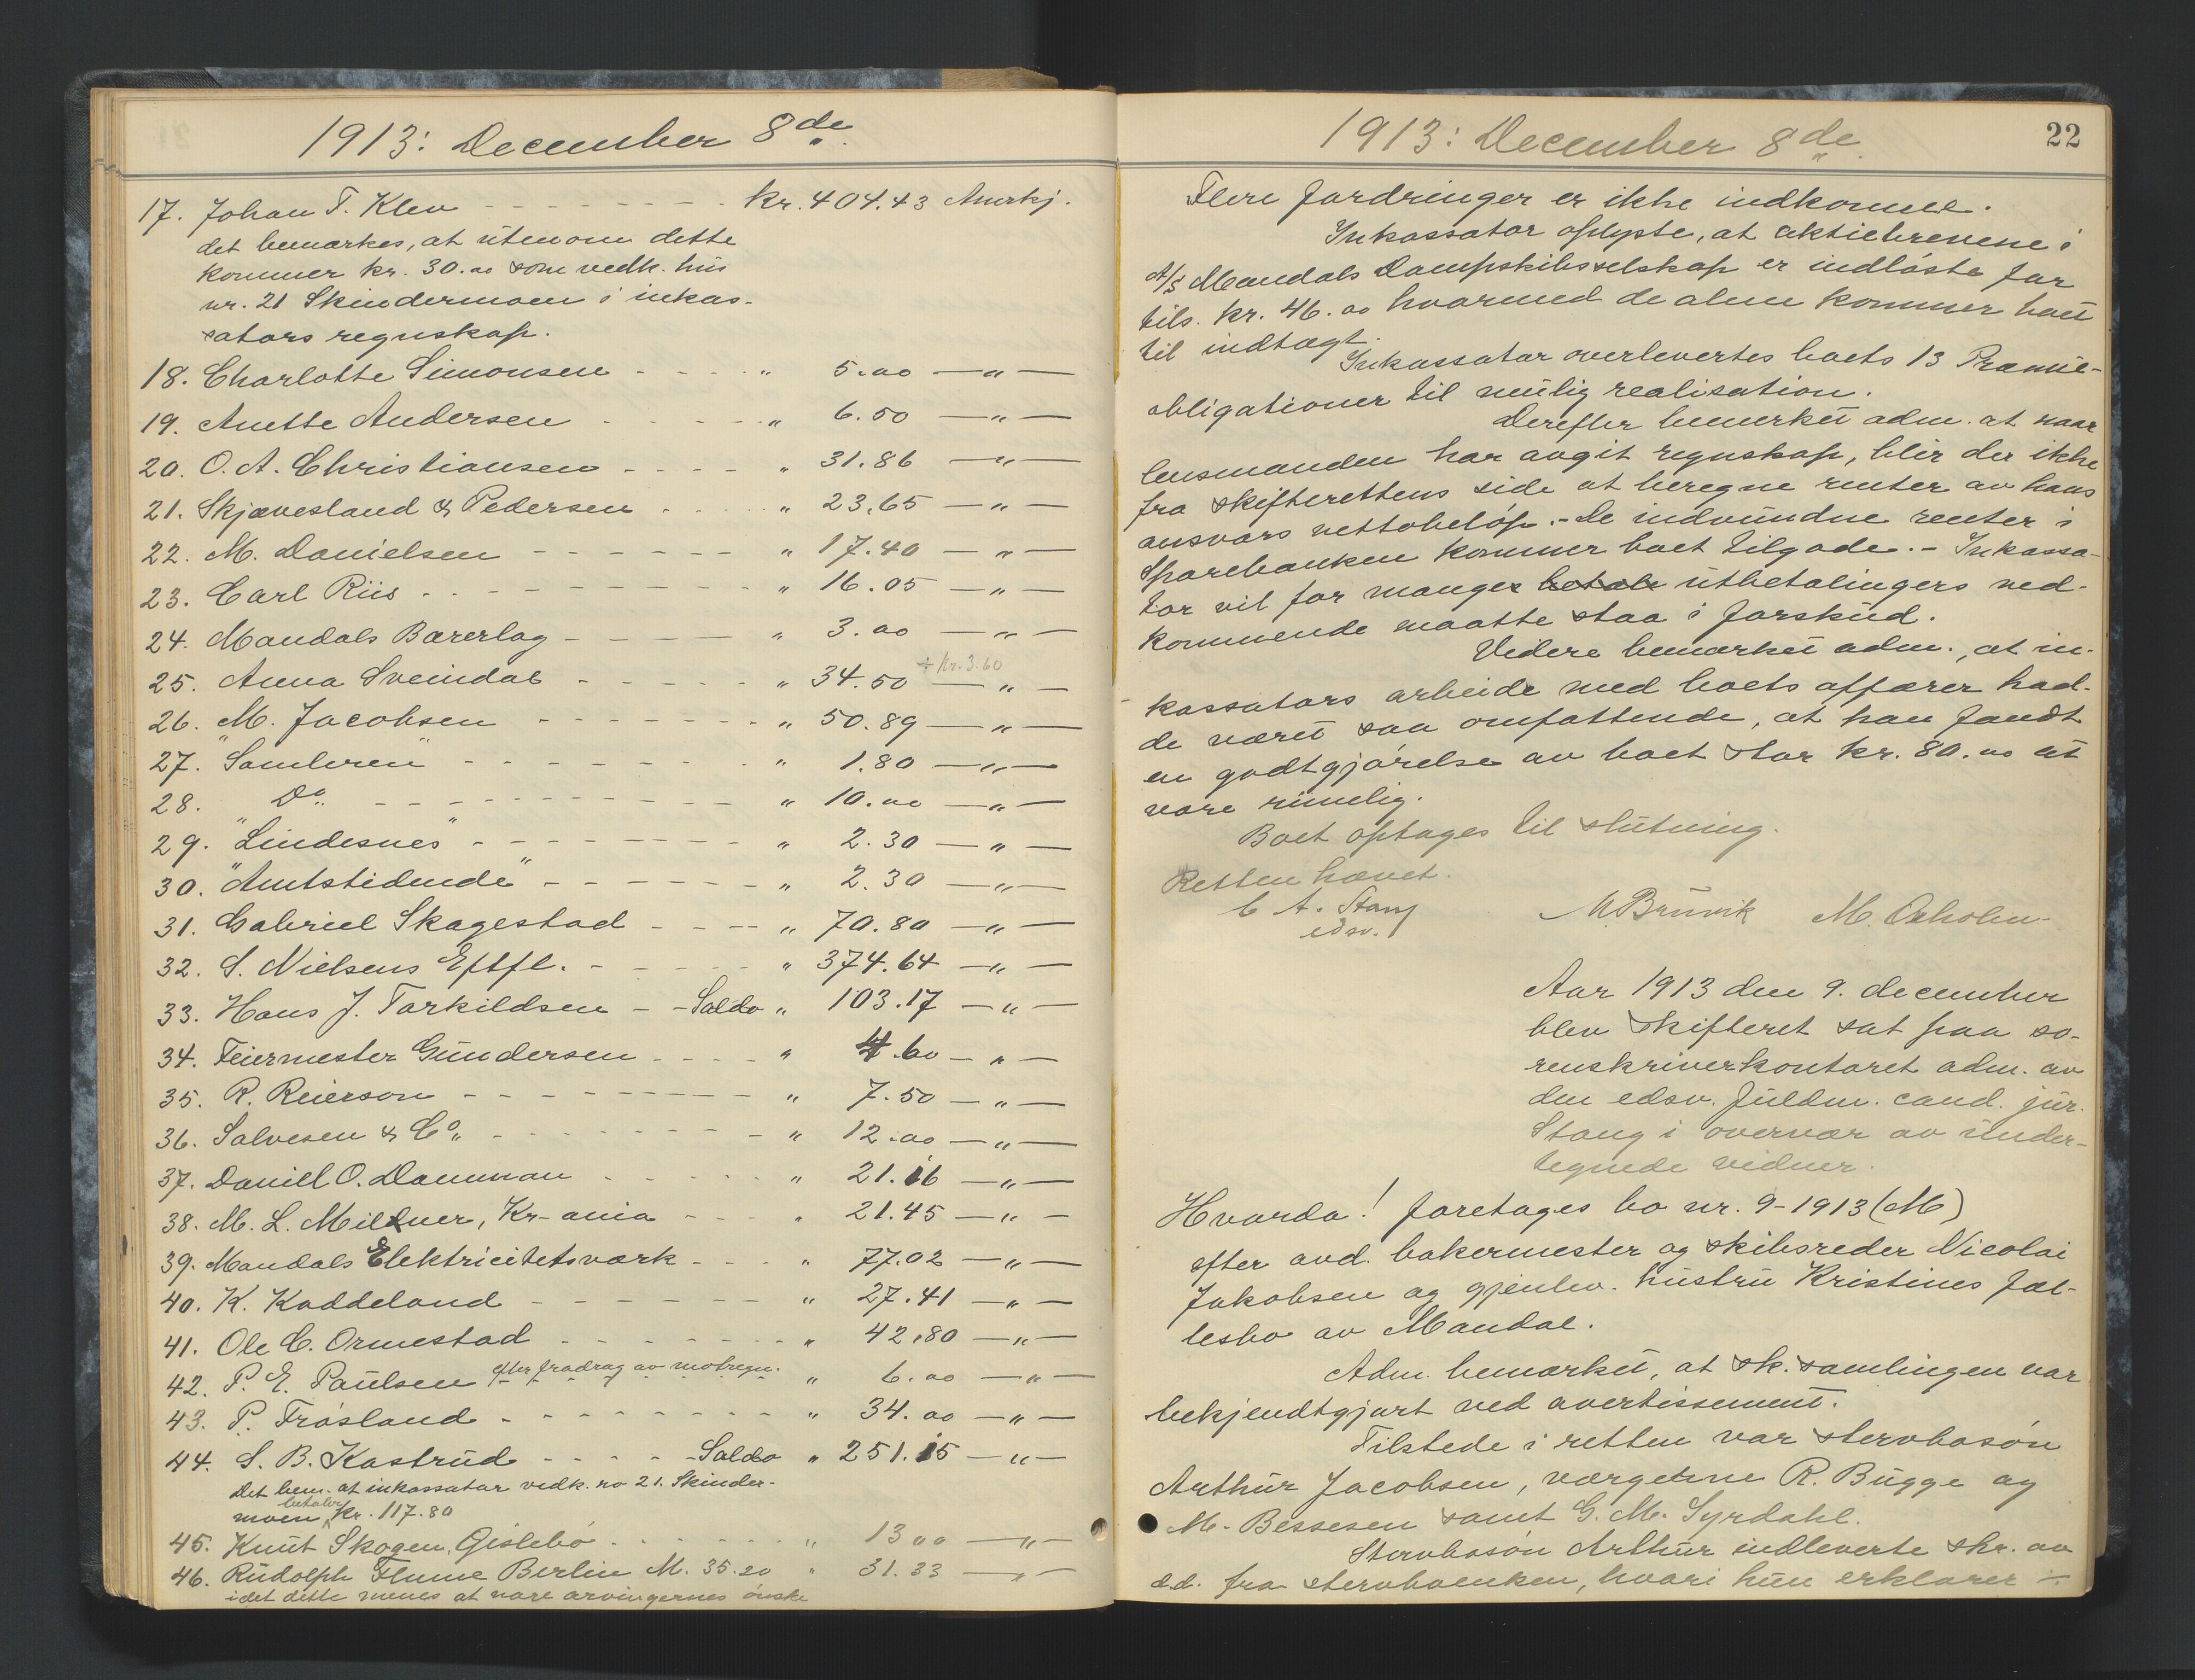 1913: December 8de
17. Johan T. Klev - - - - - - - - kr. 404.43 Anerkj.
det bemærkes, at utenom dette
kommer kr. 30.00 som vedk. hus
nr. 21 Skindermoen i inkas-
sators regnskap.
18. Charlotte Simonsen - - - - " 5.00 — " —
19. Anette Andersen - - - - - " 6.50 — " —
20. O. A. Christiansen - - - - " 31.86 — " —
21. Skjævesland & Pedersen - - - - " 23.65 — " —
22. M. Danielsen - - - - - - " 17.40 — " —
23. Carl Riis - - - - - - - - " 16.05 — " —
24. Mandals Bærerlag - - - - - " 3.00 — " —
÷ Kr. 3.60
25. Anna Sveindal - - - - - " 34.50 — " —
26. M. Jacobsen - - - - - - - " 50.89 — " —
27. "Samleren" - - - - - - - " 1.80 — " —
28. Do - - - - - - - - - - " 10.00 — " —
29. "Lindesnes" - - - - - - - - " 2.30 — " —
30. "Amtstidende" - - - - - - " 2.30 — " —
31. Gabriel Skagestad - - - - " 70.80 — " —
32. S. Nielsens Eftfl. - - - - - " 374.64 — " —
33. Hans J. Tarkildsen - - Saldo " 103.17 — " —
34. Feiermester Gundersen - - - - " 4.60 — " —
35. R. Reierson - - - - - - - - " 7.50 — " —
36. Salvesen & Co. - - - - - - - - " 12.00 — " —
37. Daniell O. Damman - - - - - " 21.16 — " —
38. M. L. Mildner, Kr-ania - - - " 21.45 — " —
39. Mandals Elektricitetsværk - - - " 77.02 — " —
40. K. Kaddeland - - - - - - - " 27.41 — " —
41. Ole C. Ormestad - - - - - - - " 42.80 — " —
42. P. E. Paulsen efter fradrag av motregn. " 6.00 — " —
43. P. Frøsland - - - - - - - - " 34.00 — " —
44. S. B. Kastrud - - - - Saldo " 251.15 — " —
Det bem. at inkassator vedk. no 21. Skinder-
moen betaler kr. 117.80
45. Knut Skogen, Gislebø - - - - - - " 13 00 — " —
46. Rudolph Flume Berlin M. 35.20 " 31.33 — " —
idet dette menes at være arvingernes ønske
1913: December 8de
22
Flere fordringer er ikke indkomne.
Inkassator oplyste, at aktiebrevene i
A/S Mandals Dampskibsselskap er indløste for
tils. kr. 46.00 hvormed de alene kommer boet
til indtægt.
Inkassator overlevertes boets 13 Præmie-
obligationer til mulig realisation.
Derefter bemerket adm. at naar
lensmanden har avgit regnskap, blir der ikke
fra skifterettens side at beregne renter av hans
ansvars nettobeløp. - De indvundne renter i
Sparebanken kommer boet tilgode. - Inkassa-
tor vil for manges betale utbetalingers ved-
kommende maatte staa i forskud.
Videre bemærket adm., at in-
kassators arbeide med boets affærer had-
de været saa omfattende, at han fandt
en godtgjørelse av boet stor kr. 80.00 at
være rimelig.
Boet optages til slutning.
Retten hævet.
C A. Stang
edsv.
M. Bruvik M. Oxholm
Aar 1913 den 9. december
blev skifteret sat paa so-
renskriverkontoret adm. av
den edsv. fuldm. cand. jur.
Stang i overvær av under-
tegnede vidner.
Hvorda! foretages bo nr. 9-1913 (M)
efter avd. bakermester og skibsreder Nicolai
Jakobsen og gjenlev. hustru Kristines fæl-
lesbo av Mandal.
Adm. bemærket, at sk. samlingen var
bekjendtgjort ved avertissement.
Tilstede i retten var stervbosøn
Arthur Jacobsen, værgerne R. Bugge og
M. Bessesen samt G. M. Syrdahl.
Stervbosøn Arthur indleverte skr. av
d.d. fra stervboenken, hvori hun erklærer